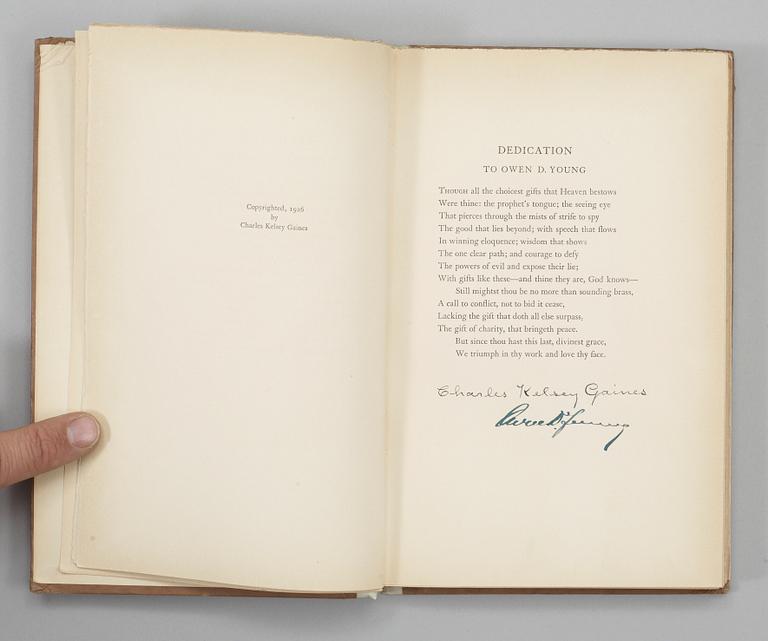 Copyrighted, 1926
by
Charles Kelsey Gaines
DEDICATION
TO OWEN D. YOUNG
THOUGH all the choicest gifts that Heaven bestows
Were thine: the prophet's tongue; the seeing eye
That pierces through the mists of strife to spy
The good that lies beyond; with speech that flows
In winning eloquence; wisdom that shows
The one clear path; and courage to defy
The powers of evil and expose their lie;
With gifts like these—and thine they are, God knows—
Still mightst thou be no more than sounding brass,
A call to conflict, not to bid it cease,
Lacking the gift that doth all else surpass,
The gift of charity, that bringeth peace.
But since thou hast this last, divinest grace,
We triumph in thy work and love thy face.
Charles Kelsey Gaines
Owen D. Young